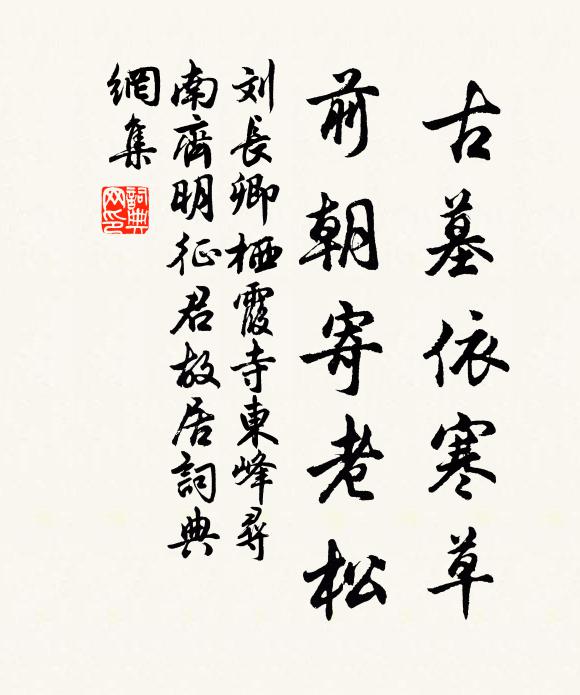 古墓依寒草
前朝寄老松
刘長卿栖霞寺東峰尋
南齊明征君故居詞典
網集
詞典
网印